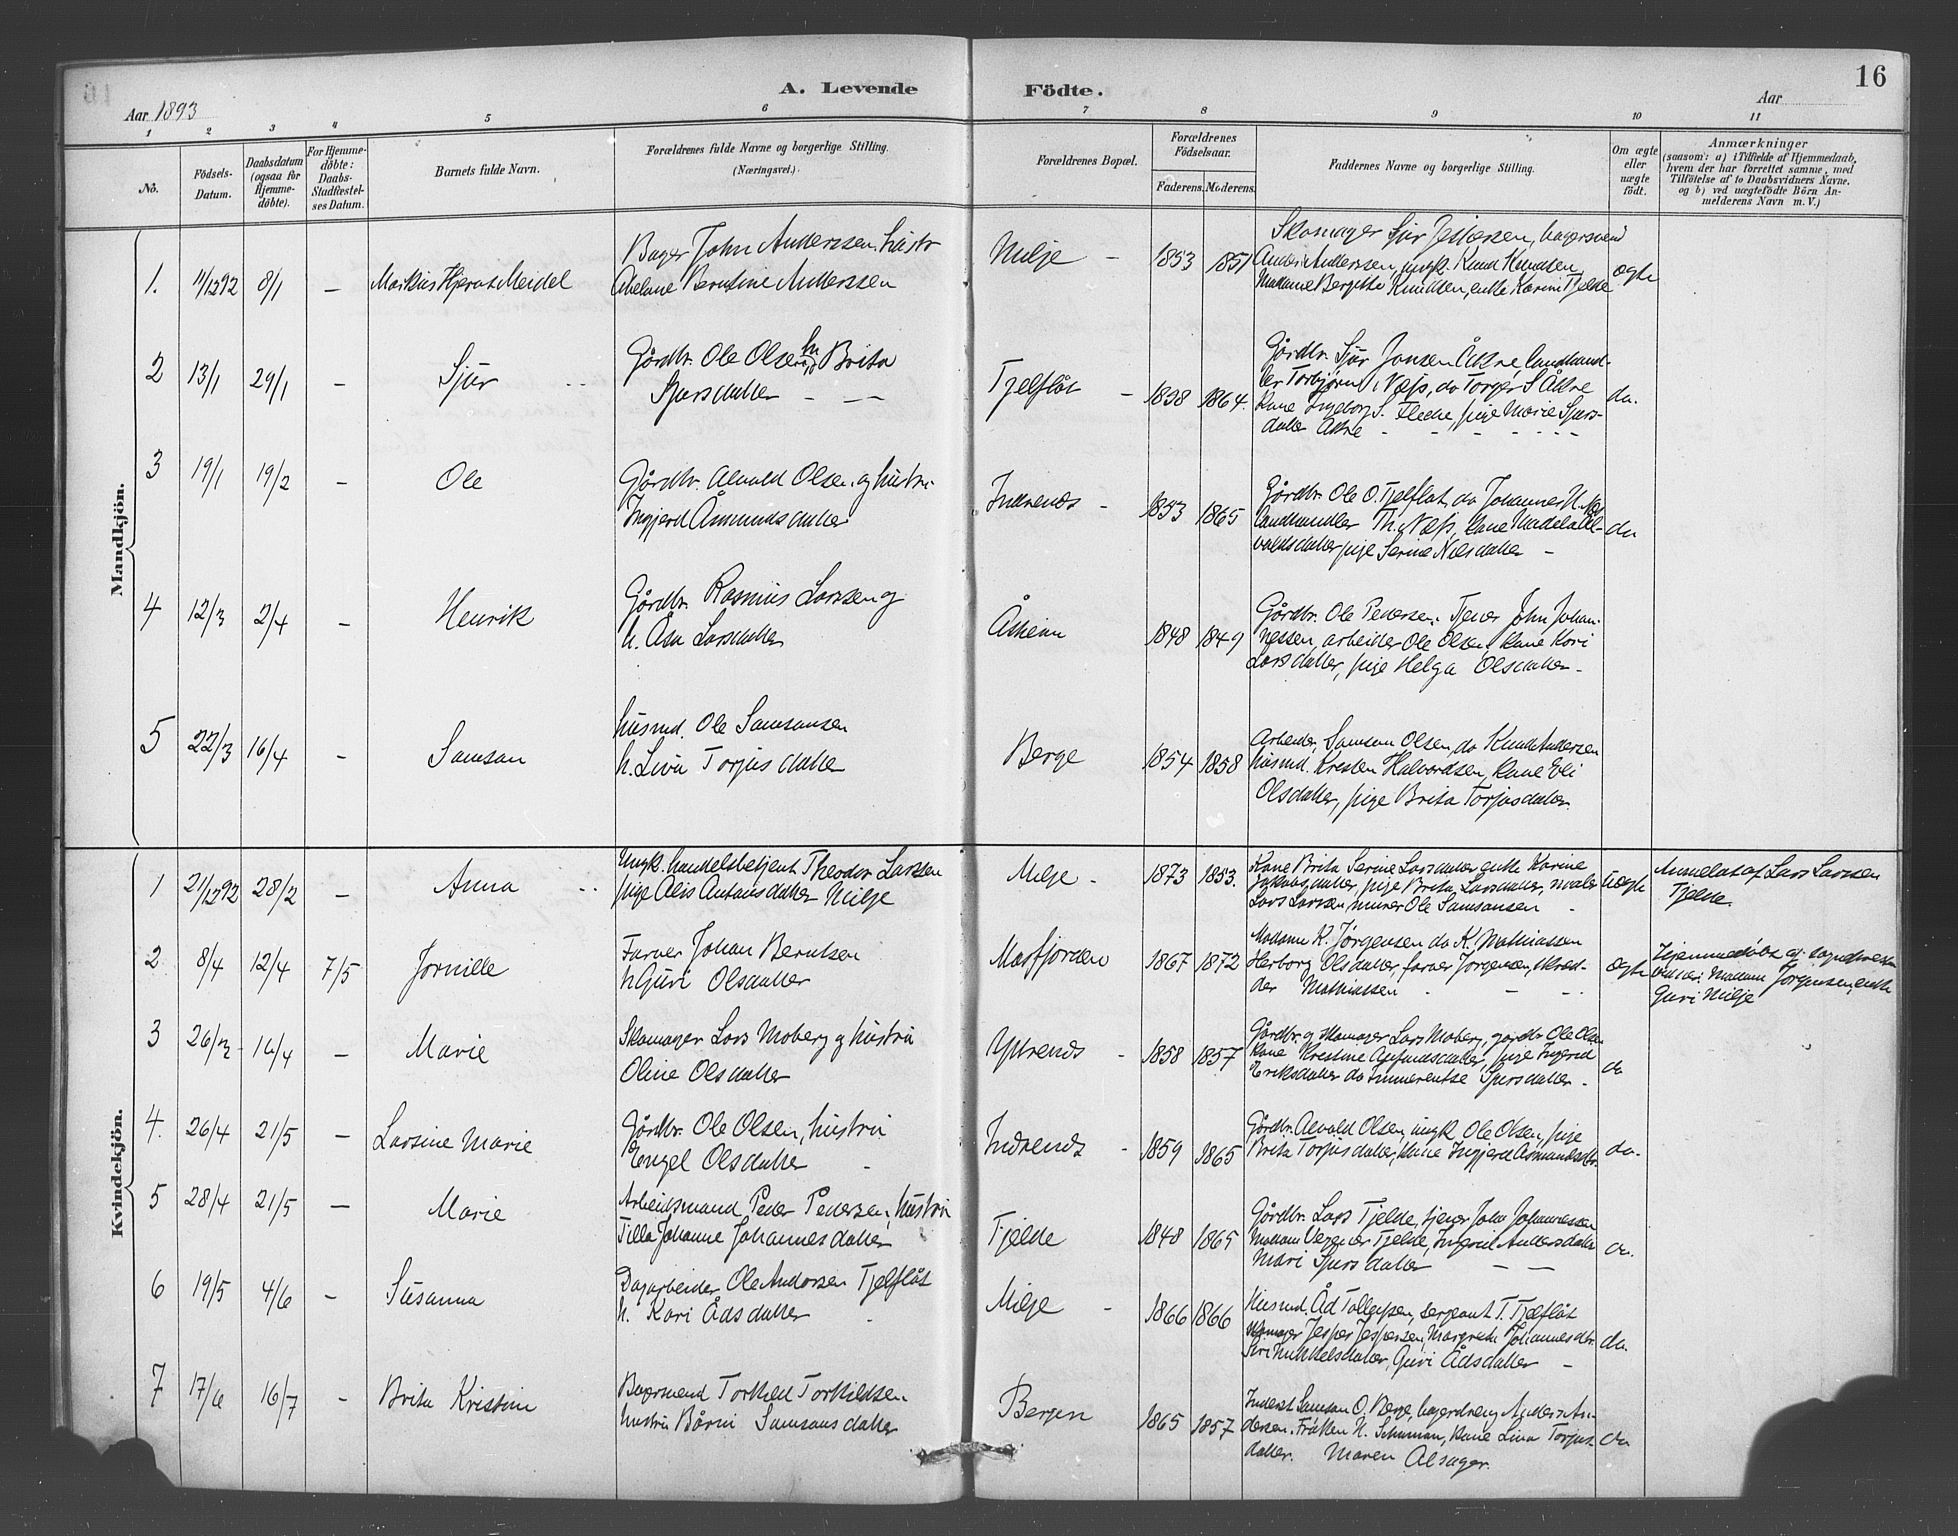 A. Levende Födte.
16
Aar 1893
Aar
1 2 3 4 5 6 7 8 9 10 11
No.
Födsels-Datum.
Daabsdatum (ogsaa for Hjemme-döbte).
For Hjemme-döbte: Daabs-Stadfæstel-ses Datum.
Barnets fulde Navn.
Forældrenes fulde Navne og borgerlige Stilling. (Næringsvei.)
Forældrenes Bopæl.
Forældrenes Födselsaar.
Faderens. Moderens.
Faddernes Navne og borgerlige Stilling.
Om ægte eller uægte födt.
Anmærkninger
(saasom: a) i Tilfælde af Hjemmedaab,
hvem der har forrettet samme, med
Tilföielse af to Daabsvidners Navne,
og b) ved uægtefödte Börn An-
melderens Navn m. V.)
Mandkjön.
1. 11/12 92 8/1 –
Bager John Anderssen, hustr
Berntine Anderssen
Milje – 1853 1851
Skomager Sjur Jespersen, bagersvend
Anders Anderssen, ungk. Knud Knudsen,
Madame Bergitte Knudsen, enke Karine Tjelde
ægte
2 13/1 29/1 – Sjur
Gårdbr. Ole Olsen og h Brita
Sjursdatter – –
Tjelflåt – 1838 1864.
Gårdbr. Sjur Jonsen Åkre, landhand-
ler Torbjörn Næss, do Torger S Åkre
Kone Ingeborg S. Fleche, pige Marie Sjurs-
datter Åkre
do.
3 19/1 19/2 – Ole
Gårdbr. Alvald Olsen og hustru
Ingjerd Åsmundsdatter
Indrenæs – 1853 1865
Gårdbr. Ole O. Tjelflåt, do Johannes H. Næs
landhandler Th. Næss, kone
valdsdatter, pige Serine Nilsdatter –
do
4 12/3 2/4 – Henrik
Gårdbr. Rasmus Larssen og
h. Åsa Larsdatter
Åsheim 1848 1849
Gårdbr. Ole Pedersen, Tjener John Johan-
nessen, arbeider Ole Olsen, kone Kari
Larsdatter, pige Helga Olsdatter –
5 22/3 16/4 – Samson
husmd. Ole Samsonsen
h. Liva Torjusdatter
Berge 1854 1858
Arbeider Samson Olsen, do Knud Andersen
husmd. Kresten Halvordsen, kone Eli
Olsdatter, pige Brita Torjusdatter.
Kvindekjön.
1 21/12 92 28/2 – Anna
Ungk. handelsbetjent Theodor Larssen
pige Alis Antonsdatter Milje
Milje – 1873 1853.
Kone Brita Serine Larsdatter, enke Karine
pige Brita Larsdatter, maler
Lars Larsen, murer Ole Samsonsen
uægte
Anmeldt af Lars Larssen
Tjelde.
2 8/4 12/4 7/5
Farver Johan Berntsen
h Guri Olsdatter
Masfjorden 1867 1872
Madame K. Jørgensen do K. Mathiassen
Herborg Olsdatter, farver Jørgensen, skræd-
der Mathiassen – – –
ægte
Hjemmedöbt af
Madam Jørgensen, enke
Guri Milje
3 26/3 16/4 – Marie
Skomager Lars Moberg og hustru
Oline Olsdatter
Ytrenæs – 1858 1857
Gårdbr. og skomager Lars Moberg, gårdbr. Ole Olsen
kone Krestine Anfindsdatter, pige Ingerid
Eriksdatter do Sjursdatter –
do
4. 26/4 21/5 – Larsine Marie
Gårdbr. Ole Olsen, hustru
Engel Olsdatter
Indrenæs – 1859 1865
Gårdbr. Alvald Olsen, ungk Ole Olsen, pige
Brita Torjusdatter, kone Ingjerd Åsmundsdtr.
do.
5 28/4 21/5 – Marie
Arbeidsmand Peder Pedersen, hustru
Tilla Johanne Johannesdatter
Tjelde 1848 1865
Gårdbr. Lars Tjelde, tjener John Johannessen
Madam Tjelde, Ingerid Andersdatter
Mari Sjursdatter – –
do.
6 19/5 4/6 – Susanna
Dagarbeider Ole Andersen Tjelflåt
h. Kari Ådsdatter
Milje – 1866 1866
Husmd. Åd Tollefsen, sergeant T. Tjelflåt
skomager Jesper Jespersen, Margrete Johannesdtr.
Siri Mikkelsdatter, Guri Ådsdatter –
do.
7 17/6 16/7 – Brita Kristine
Bagersvend Torkild Torkildsen
hustru Bårni Samsonsdatter
Bergen 1865 1857
Samson O. Berge, Anders An-
dersen. Fröken N. kone Liva Torjus-
datter. Maren Alsager.
do